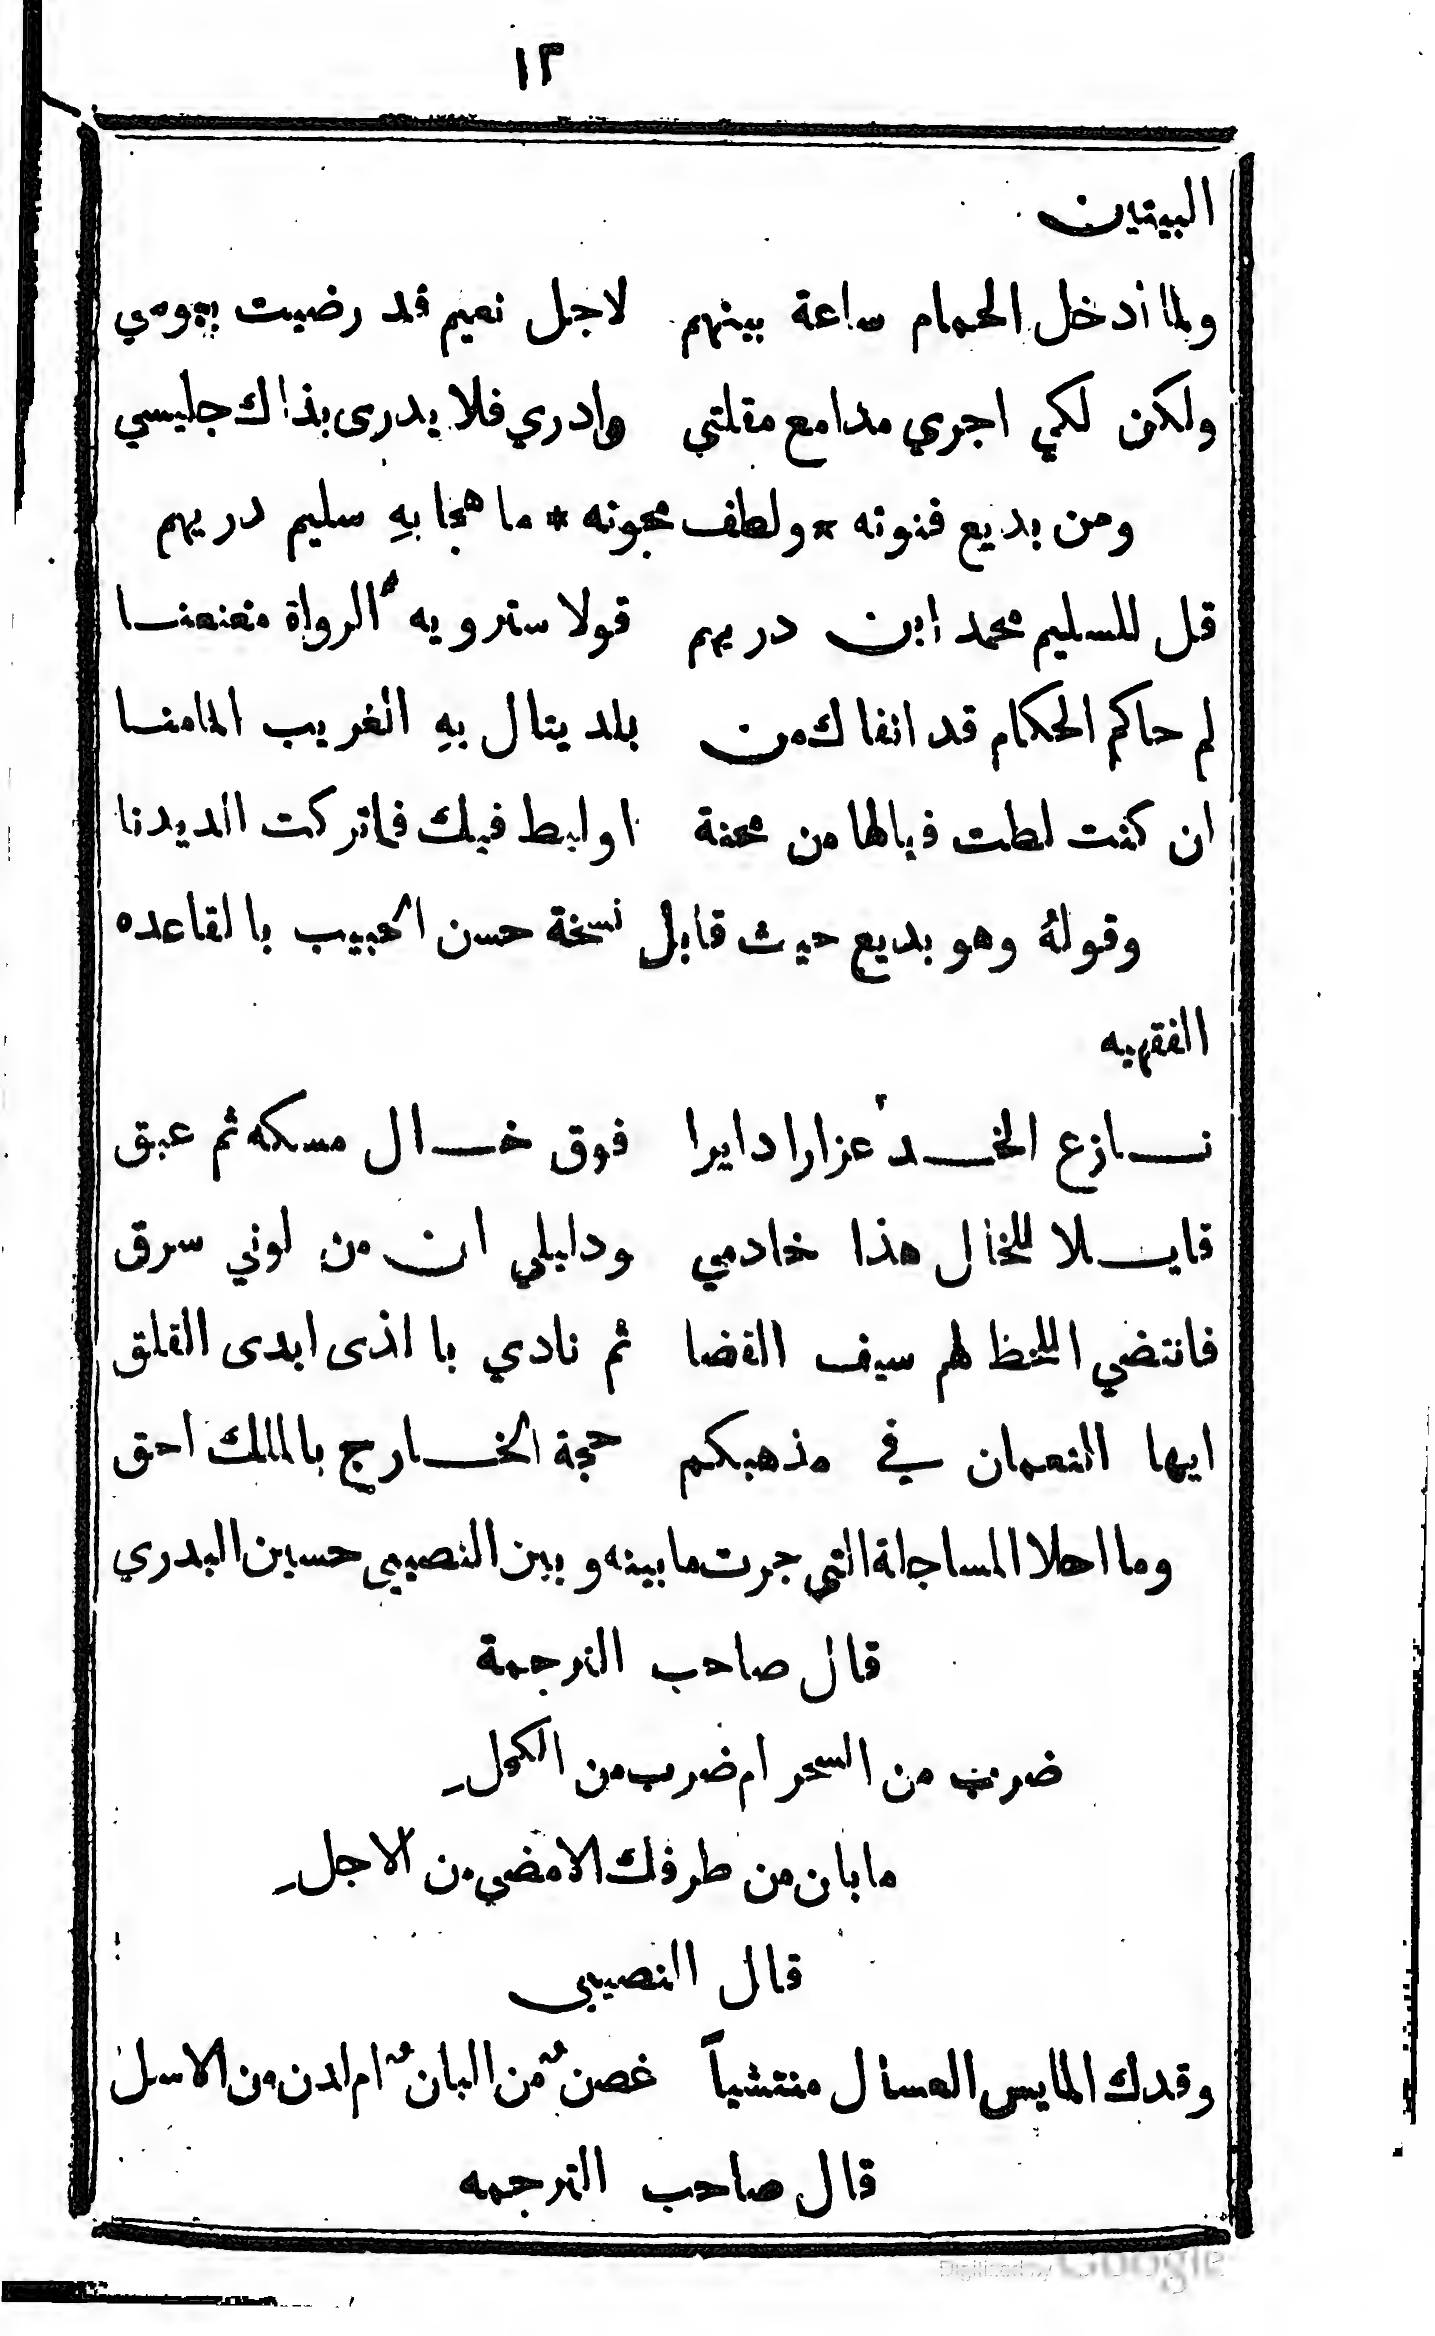 ١٣
البيتين
ولما أدخل الحمام ساعة بينهم لاجل نعيم قد رضيت ببوسي
ولكن لكي اجري مدامع مقلتي وادري فلا يدرى بذاك جليسي
ومن بديع فنونه * ولطف مجونه * ما هجا بهِ سليم دريهم
قل للسليم محمد ابن دريهم قولا سترويه الرواة معنعنـا
لم حاكم الحكام قد انفاك من بلد ينال بهِ الغريب المامنـا
ان كنت لطت فيالها من محنة اوليط فيك فماتركت الديدنا
وقولهُ وهو بديع حيث قابل نسخة حسن الحبيب بالقاعده
الفقهيه
نــازع الخــد عزارا دايرا فوق خــال مسكه ثم عبق
قايــلا للخال هذا خادمي ودليلي ان من لوني سرق
فانتضي اللحظ لهم سيف القضا ثم نادي با اذى ابدى القلق
ايها النعمان في مذهبكم حجة الخــارج بالملك احق
وما احلا المساجلة التي جرت مابينه وبين النصيبي حسين البدري
قال صاحب الترجمة
ضرب من السحر ام ضرب من الكحل
مابان من طرفك الامضي من الاجل
قال النصيبى
وقدك المايس العسال منتشياً غصن من البان ام لدن من الاسل
قال صاحب الترجمه
Digitized by Google